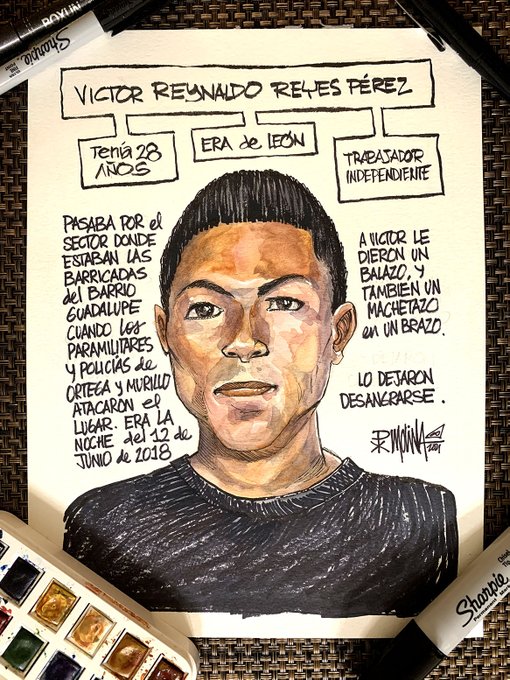 VICTOR REYNALDO REYES PÉREZ
Tenía 28
AÑOS
ERA de LEÓN
TRABAJADOR
INDEPENDIENTE
PASABA POR el
SECTOR DONDE
ESTABAN LAS
BARRICADAS
del BARRIO
GUADALUPE
CUANDO los
PARAMILITARES
y POLICÍAS de
ORTEGA y MURILLO
ATACARON el
LUGAR. ERA LA
NOCHE del 12 de
JUNIO de 2018
A VICTOR LE
DIERON UN
BALAZO, y
TAMBIÉN UN
MACHETAZO
en UN BRAZO.
LO DEJARON
DESANGRARSE.
MOLINA
2021
Sharpie
Sharpie